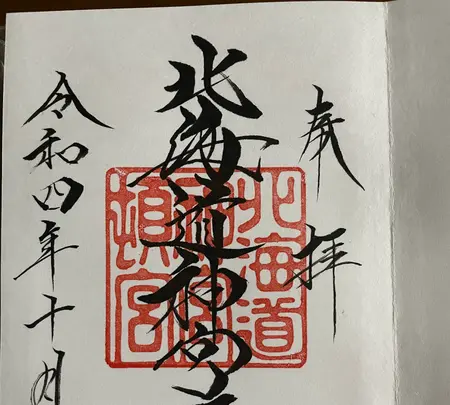 奉拝
北海道神宮
令和四年十月
北海道
神宮
頓宮